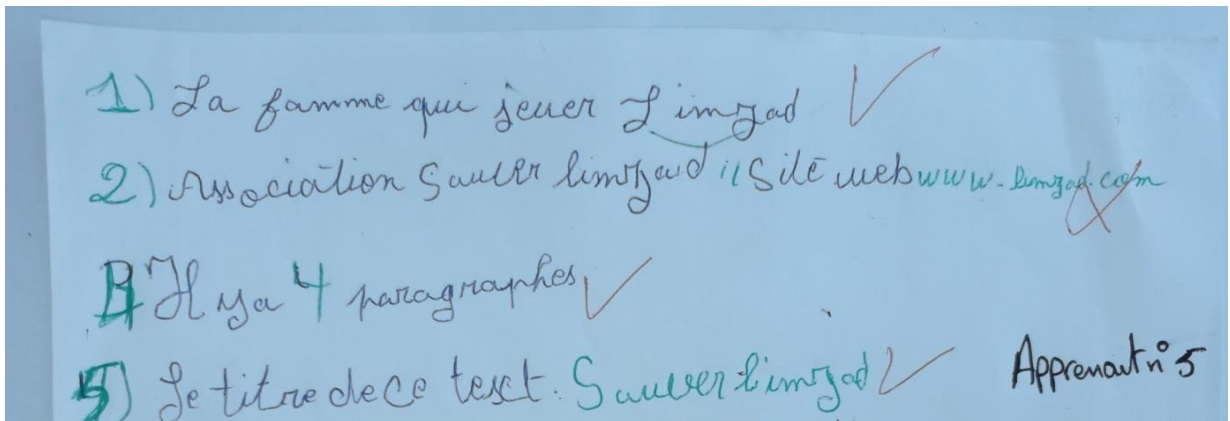 1) La famme qui jeuer L'imzad
2) Association Sauver limzad "Site web www.limzad.com
4) Il ya 4 paragraphes
5) Le titre de ce text. Sauver limzad
Apprenant n° 5